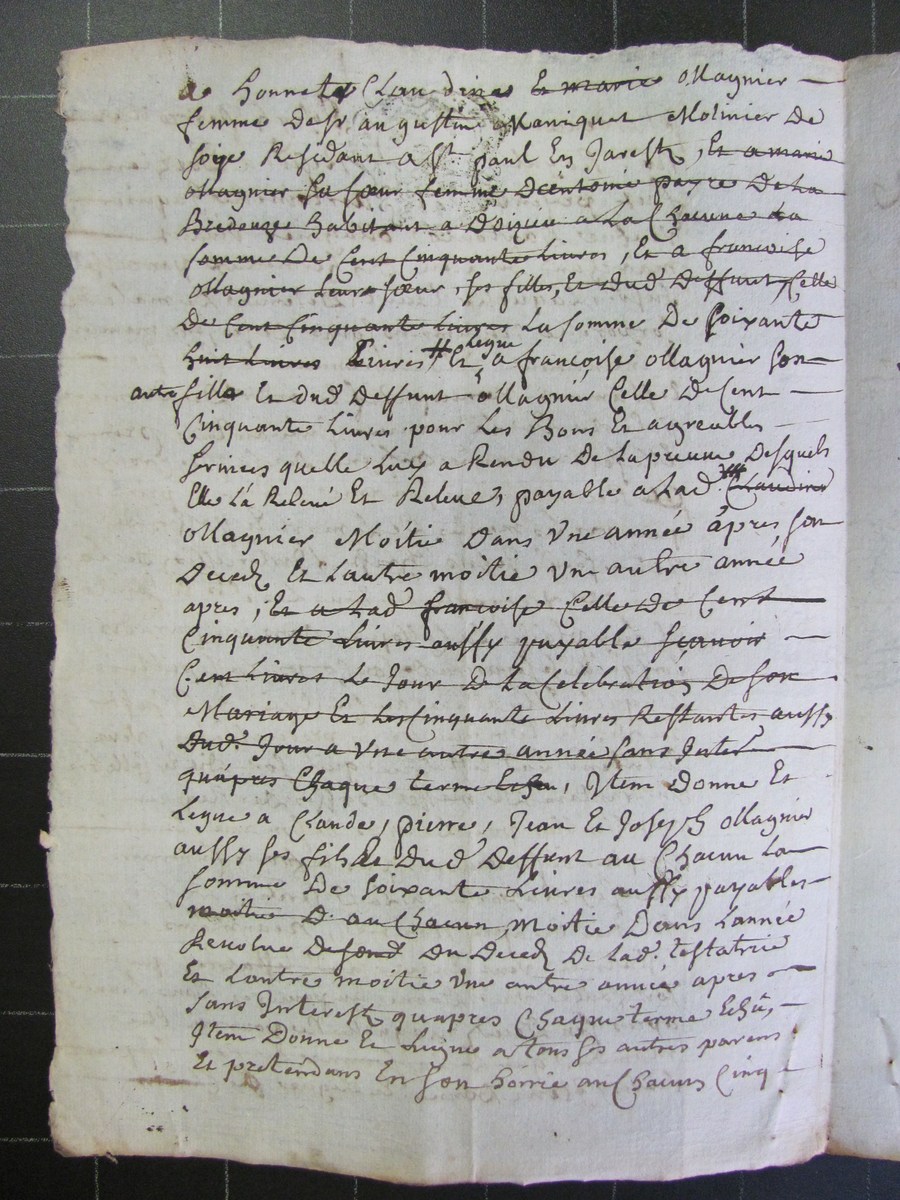 a honnete Claudine et marie Magnier
femme de sr augustin Maniquet Molinier de
soye Residant a st paul En Jarest, Et a marie
Magnier sa sœur femme dentoine payre de la
habitant a Doizieu a La Chacune La
somme De Cent Cinquante Livres, Et a francoise
Magnier Leur sœur, ses filles, Et dud deffunt, Celle
De Cent Cinquante Livres La somme De soixante
huit Livres Livres # Et Legue a francoise Magnier son
autre fille Et dud Deffunt Magnier Celle de Cent
Cinquante Livres pour Les Bons Et agreables
services quelle Luy a Rendu De La preuve Desquels
Elle La Relevé Et Releve, payable a Lad. Claudine
Magnier Moitie Dans Vne année apres son
Deced Et Lautre moitie Vne autre année
apres, Et a Lad francoise Celle de Cent
Cinquante Livres aussy payable scavoir
Cent Livres Le Jour De La Celebration De son
Mariage Et Les Cinquante Livres Restantes aussy
Dud. Jour a Vne autre année sans Inter
quapres Chaque terme Echu, Item Donne Et
Legue a Claude, pierre, Jean Et Joseph Magnier
aussy ses fils Et Dud Deffunt au Chacun La
somme De soixante Livres aussy payables
moitie D au Chacun Moitie Dans Lannée
Revolue De son d Du Deced De Lad. testatrice
Et Lautre moitie Vne autre année apres
sans Interest quapres Chaque terme Echu,
Item Donne Et Legue a tous ses autres parens
Et pretendans En son hoirie au Chacun Cinq